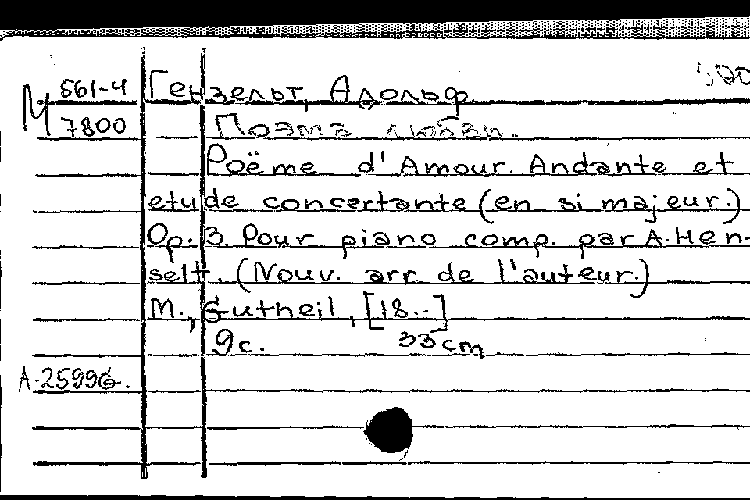 М 561-4 Гензельт, Адольф
7800 Поэма любви.
Poëme d'Amour. Andante et
etude concertante (en si majeur.)
Op. 3 Pour piano comp. par A. Hen-
selt. (Nouv. arr de l'auteur.)
M., Gutheil, [18..]
9c. 33 cm.
A-25996.